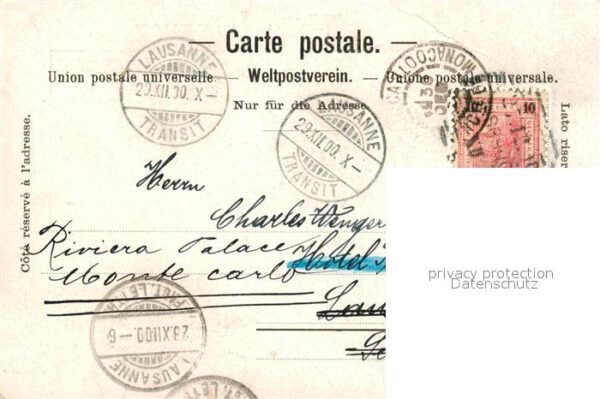 Carte postale.
Union postale universelle. Weltpostverein. Unione postale universale.
Nur für die Adresse.
Côté réservé à l'adresse.
Lato riser
LAUSANNE
29.XII.00. X-
TRANSIT
LAUSANNE
29.XII.00. X-
TRANSIT
MONACO
10
10
Herrn
Charles Wenger
Riviera Palace Hotel
Monte Carlo
28.XII.00.-6
LAUSANNE
privacy protection
Datenschutz